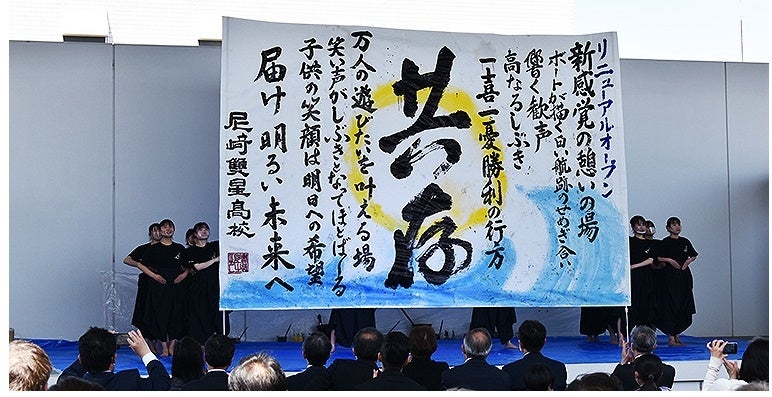 リニューアルオープン
新感覚の憩いの場
ボートが描く白い航跡のせめぎ合い
響く歓声
高なるしぶき
一喜一憂勝利の行方
共存
万人の遊びたいを叶える場
笑い声がしぶきとなってほとばしる
子供の笑顔は明日への希望
届け明るい未来へ
尼崎双星高校